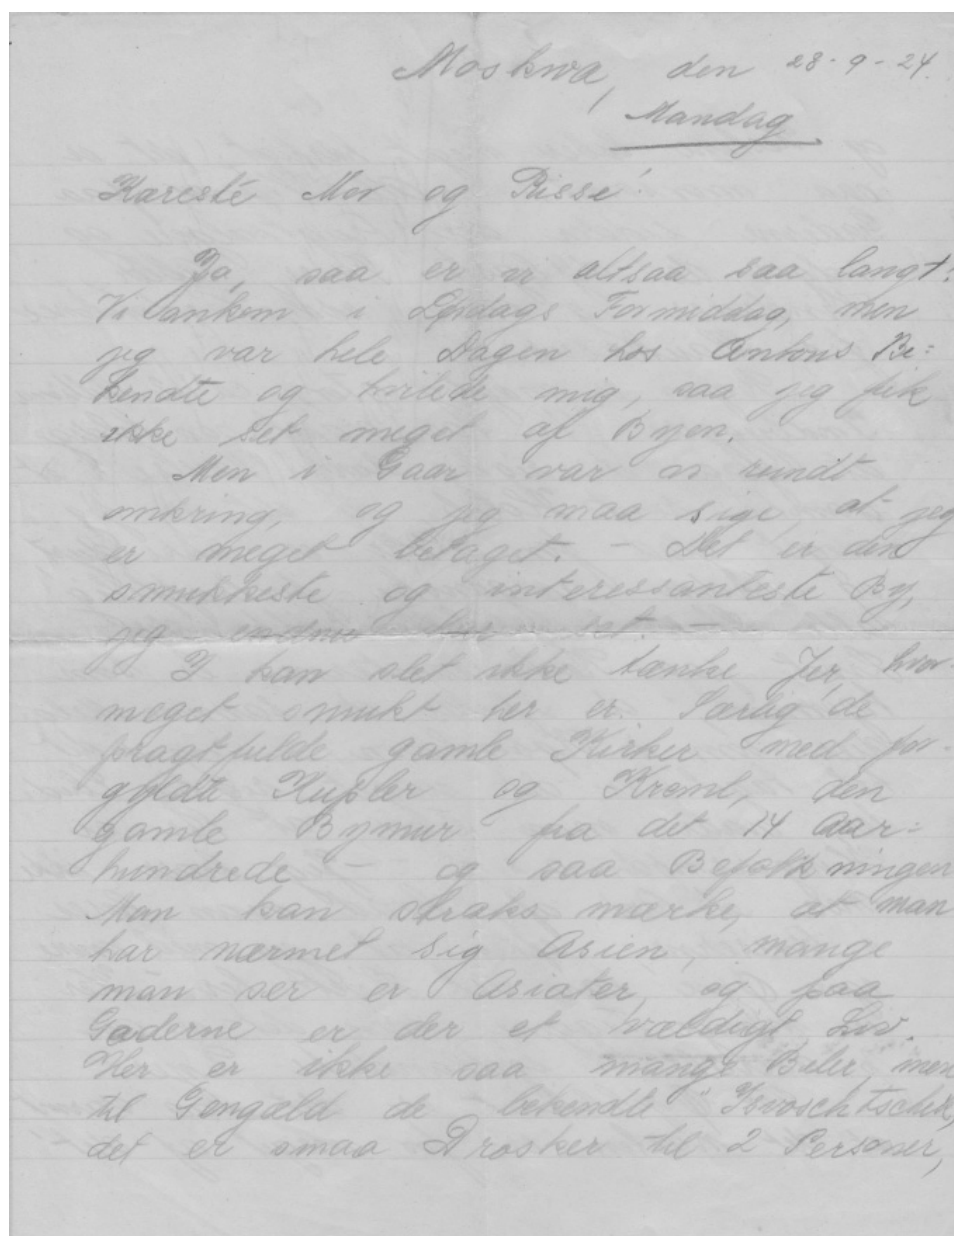 Moskwa, den 28-9-24.
Mandag
Kæreste Mor og Risse!
Ja, saa er vi altsaa saa langt!
Vi ankom i Lørdags Formiddag, men
jeg var hele Dagen hos Antons Be=
kendte og hvilede mig, saa jeg fik
ikke set meget af Byen.
Men i Gaar var vi rundt
omkring, og jeg maa sige, at jeg
er meget betaget. – Det er den
smukkeste og interessanteste By,
jeg endnu har set. –
I kan slet ikke tænke Jer, hvor
meget smukt her er. Særlig de
pragtfulde gamle Kirker med for-
gyldte Kupler og Kreml, den
gamle Bymur fra det 14 Aar=
hundrede – og saa Befolkningen
Man kan straks mærke, at man
har nærmet sig Asien, mange
man ser er Asiater, og paa
Gaderne er der et vældigt Liv.
Her er ikke saa mange Biler men
til Gengæld de bekendte "Isvoschtschik,
det er smaa Drosker til 2 Personer,